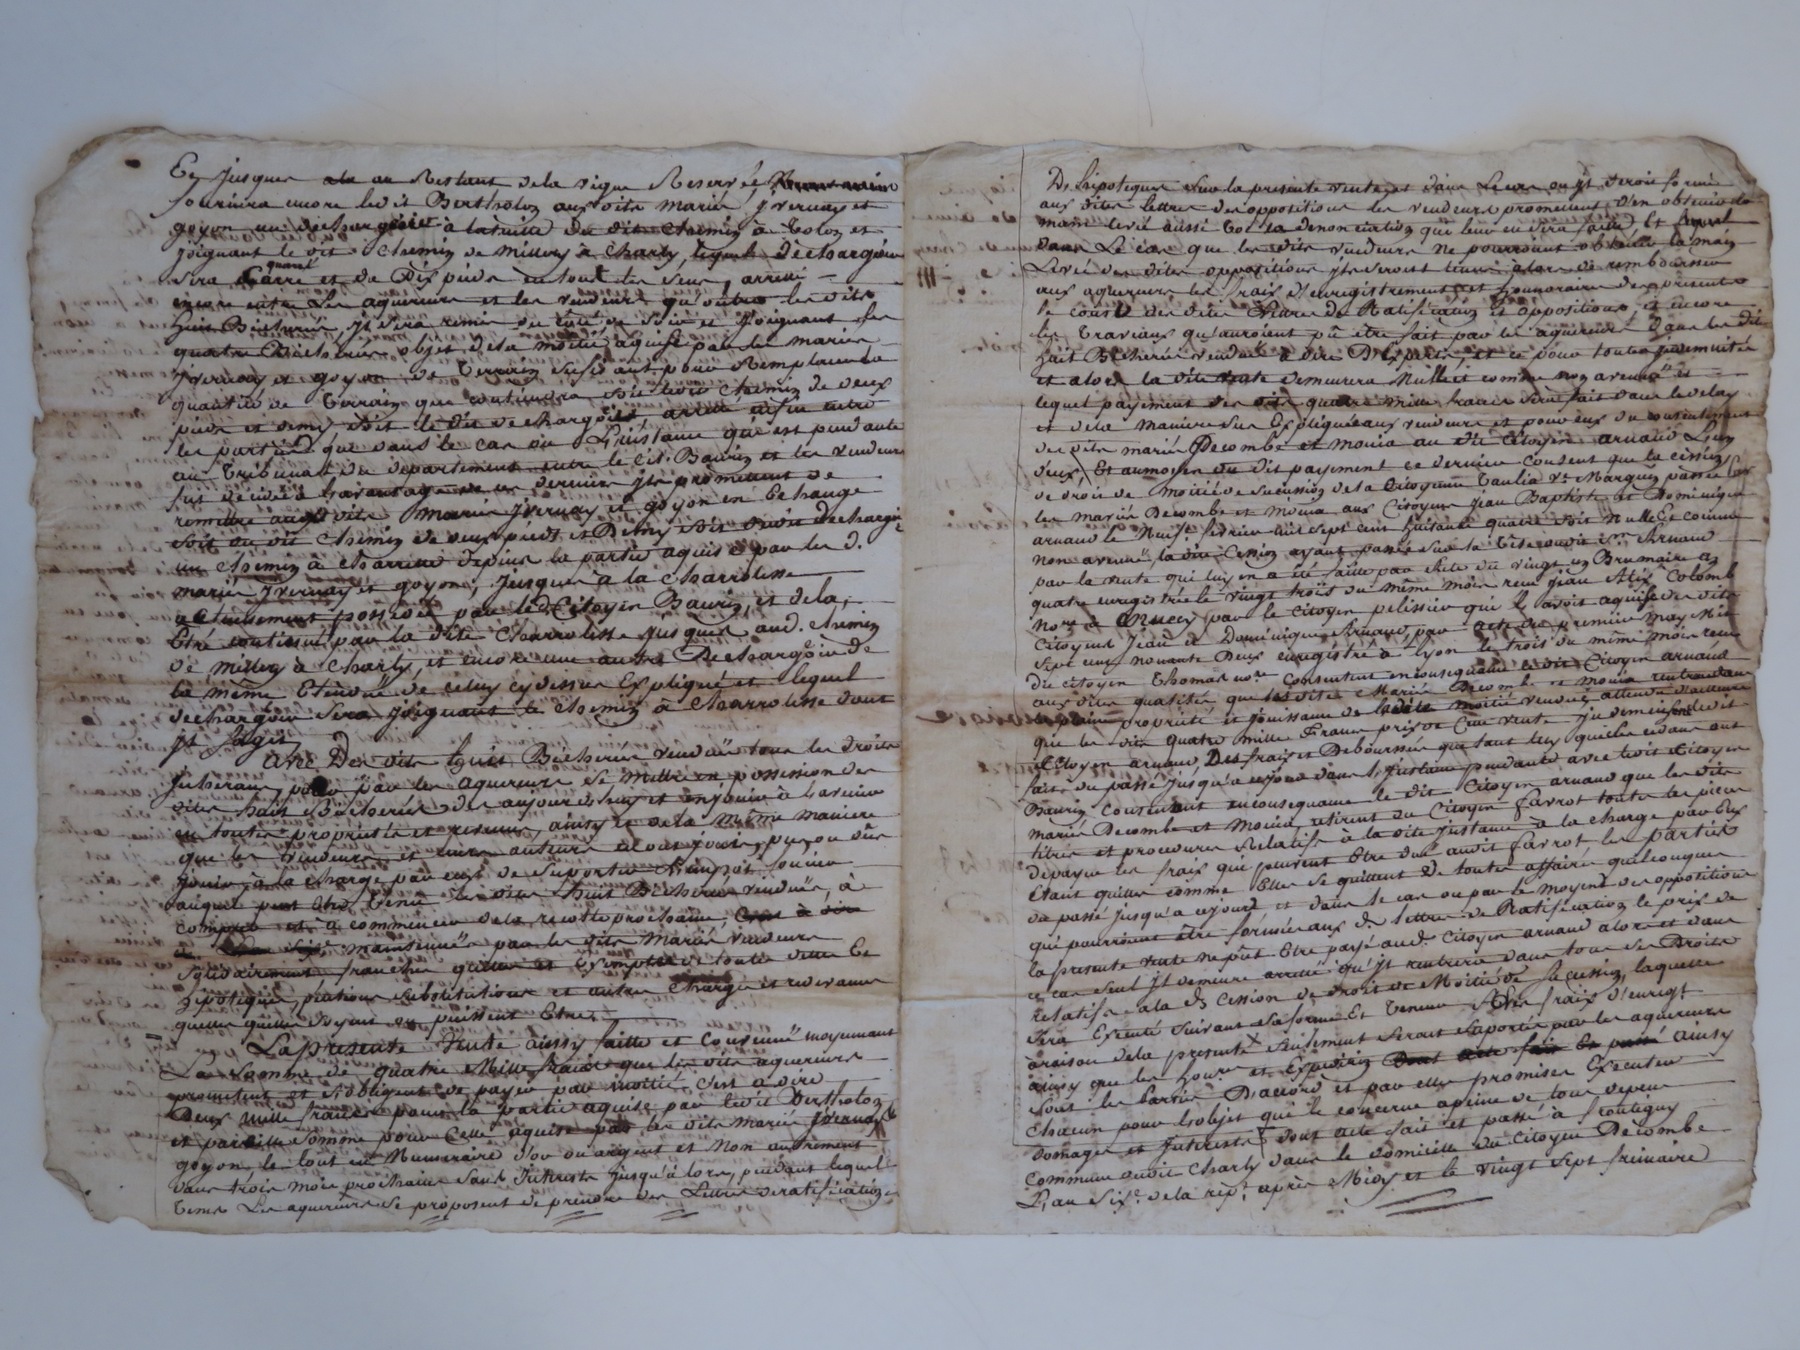 Et jusques au Restant de la vigne Reservée
fournira encore ledit Bertholon aux dits mariés jvernay et
goyon un dechargoir à la taille du dite chemin à Tolon et
joignant le dit chemin de Millery à Charly, lequel dechargoir
sera quarré et de Dix pieds en tout les sens, arreté
encore entre Les aquereurs et les vendeurs qu'outre les dits
huit Bicherées, jl sera remis du côté de et joignant les
quatre Bicherées objet de la moitié aquise par les mariés
jvernay et goyon de Terrain suffisant pour Remplacer la
quantité de Terrain que contiendra le dit chemin de deux
pieds et demy et le dit dechargoir arreté enfin entre
les parties que dans le cas où L'jnstance qui est pendante
au Tribunal du departement entre le Cit. Baurin et les vendeurs
fut decidée à Lavantage de ces derniers jls promettent de
remettre auxdits mariés jvernay et goyon en Echange
soit du dit chemin de deux pieds et Demy soit dudit dechargoir
un chemin à charriot depuis la partie aquise par les d.
mariés jvernay et goyon, jusques à la charroliere
actuellement possedée par led. Citoyen Baurin, et de là,
Etre continué par la dite charroliere jusques aud. chemin
de Millery à Charly, et encore une autre Dechargoir de
la même Etendue de celuy cy dessus Expliqué et lequel
dechargoir sera joignant le chemin à charroliere dont
jl s'agit
Des dits huit Bicherées vendues tous les droits
jnherans, pour par les aquereurs se mettre en possession des
dites huit Bicherées des aujourd'huy et enjouir à Lavenir
en toute proprieté et revenus, ainsy et de la même maniere
que les vendeurs et leurs auteurs en ont jouis, pu, ou dûs
jouir, à la charge par eux de suporter l'jmpôt foncier
auquel peut être Tenu les dites huit Bicherées vendues, à
compter et à commencer de la recolte prochaine,
maintenues par les dits Mariés vendeurs
solidairement franches quittes et Exemptes de toutes dettes et
hipoteques, pensions substitutions et autres charges et redevances
quelles qu'elles soyent ou puissent Etre.
La presente Vente ainsy faitte et Convenüe moyennant
La somme de quatre Mille francs que les dits aquereurs
promettent et s'obligent de payer par moitié c'est à dire
Deux mille francs pour la partie aquise par ledit Bertholon
et pareille somme pour Celle aquise par les dits mariés jvernay et
goyon, le tout en Numeraire d'or ou argent et Non autrement
dans trois mois prochains sans jnterets jusqu'à lors, pendant lequel
tems Les aquereurs se proposent de prendre des Lettres de ratification
D'hipoteques sur la presente vente et dans Le cas ou jl seroit formé
aux dites lettres des oppositions les vendeurs promettent d'en obtenir la
main levée aussi tot la denonciation qui leur en sera faitte Et
dans Le cas que les dits vendeurs Ne pourroient obtenir la main
Levée des dites oppositions jls seront tenus alors de rembourser
aux aquereurs les frais d'enregistrement et honoraires des presentes
le coût des dites Lettres de Ratification et oppositions, et encore
les Traveaux qu'auroient pû être fait par les aquereurs Dans les dits
huit Bicherées vendues à dire D'Experts et ce pour toutes jndemnités
et alors la dite vente demeurera Nulle et comme non avenue et
lequel payement des dits quatre mille francs sera fait dans le delay
et de la maniere sus Expliquée aux vendeurs et pour eux du consentement
des dits mariés Decombe et Mouia au dit Citoyen arnaud L'un
d'eux, Et au moyen du dit payement ce dernier Consent que la cession
de droit de moitié de succession de la Citoyenne Tantia Ve Marquin passée par
les mariés Decombe et Mouia aux Citoyens Jean Baptiste et Dominique
arnaud le Neuf. fevrier mil sept cent huitante quatre soit Nulle Et comme
non avenue la dite Cession ayant passée sur la tête dudit Cen Arnaud
par la vente qui luy en a été faitte par Acte du vingt un Brumaire an
quatre enregistré le vingt trois du même mois reçu jean Alix Colomb
Nore à par le Citoyen pelissier qui l'avoit aquise des dits
Citoyens Jean et Dominique Arnaud, par acte du premier May Mil
sept cent nonante Deux enregistré à Lyon le trois du même mois reçu
du citoyen Thomas nore Consentent en consequance le dit Citoyen arnaud
aux dites qualités, que les dits Mariés Decombe et Mouia rentrent dans
pleine proprieté et jouissance de ladite moitié vendue attendu d'ailleurs
que les dits quatre mille francs prix de Cette vente jndemnisent ledit
Citoyen arnaud Des frais et Deboursés que tant luy que les cedans ont
fait du passé jusqu'à cejour dans L'jnstance pendante avec ledit Citoyen
Baurin Consentant en consequance le dit Citoyen arnaud que les dits
mariés Decombe et Mouia, retirent du Citoyen Favrot toutes les pieces
titres et procedures Relatifs à la dite jnstance à la charge par Eux
de payer les frais qui peuvent Etre dus audit Favrot les parties
Etant quittes comme Elles se quittent de toutes affaires quelconques
du passé jusqu'à cejour et dans le cas ou par le moyen des oppositions
qui pourroient être formées aux d. lettres de Ratification le prix de
la presente vente ne pût Etre payé aud. Citoyen arnaud alors et dans
ce cas seul jl demeure arreté qu'jl rentrera dans tous ses Droits
relatifs à la ds. cession de droit de Moitié de succession laquelle
sera Executée Suivant sa forme Et Teneur frais d'enregt
à raison de la presente seulement seront suportés par les aquereurs
ainsy que les honres et Expedition ainsy
sont les parties D'accord et par elles promises Executer
chacun pour l'objet qui le concerne à peine de tous depens
domages et jnterets dont acte fait et passé à frontigny
Commune dudit Charly dans le domicile du Citoyen Decombe
L'an Sixe de la repe après Midy et le vingt sept frimaire